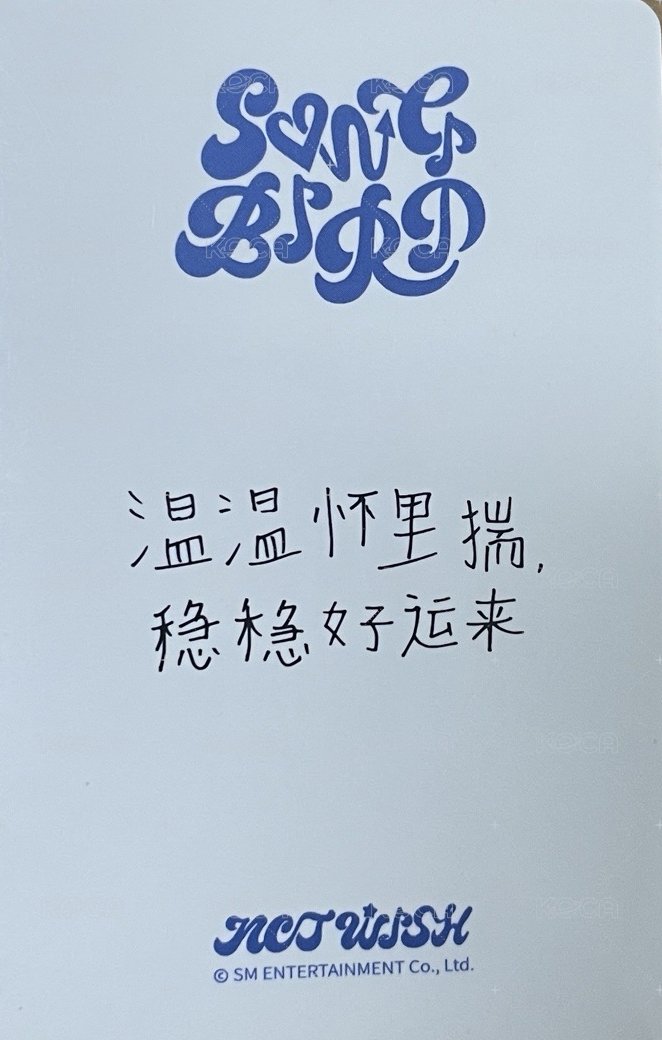 SONG
BIRD
温温怀里揣,
稳稳好运来
NCT WISH
© SM ENTERTAINMENT Co., Ltd.